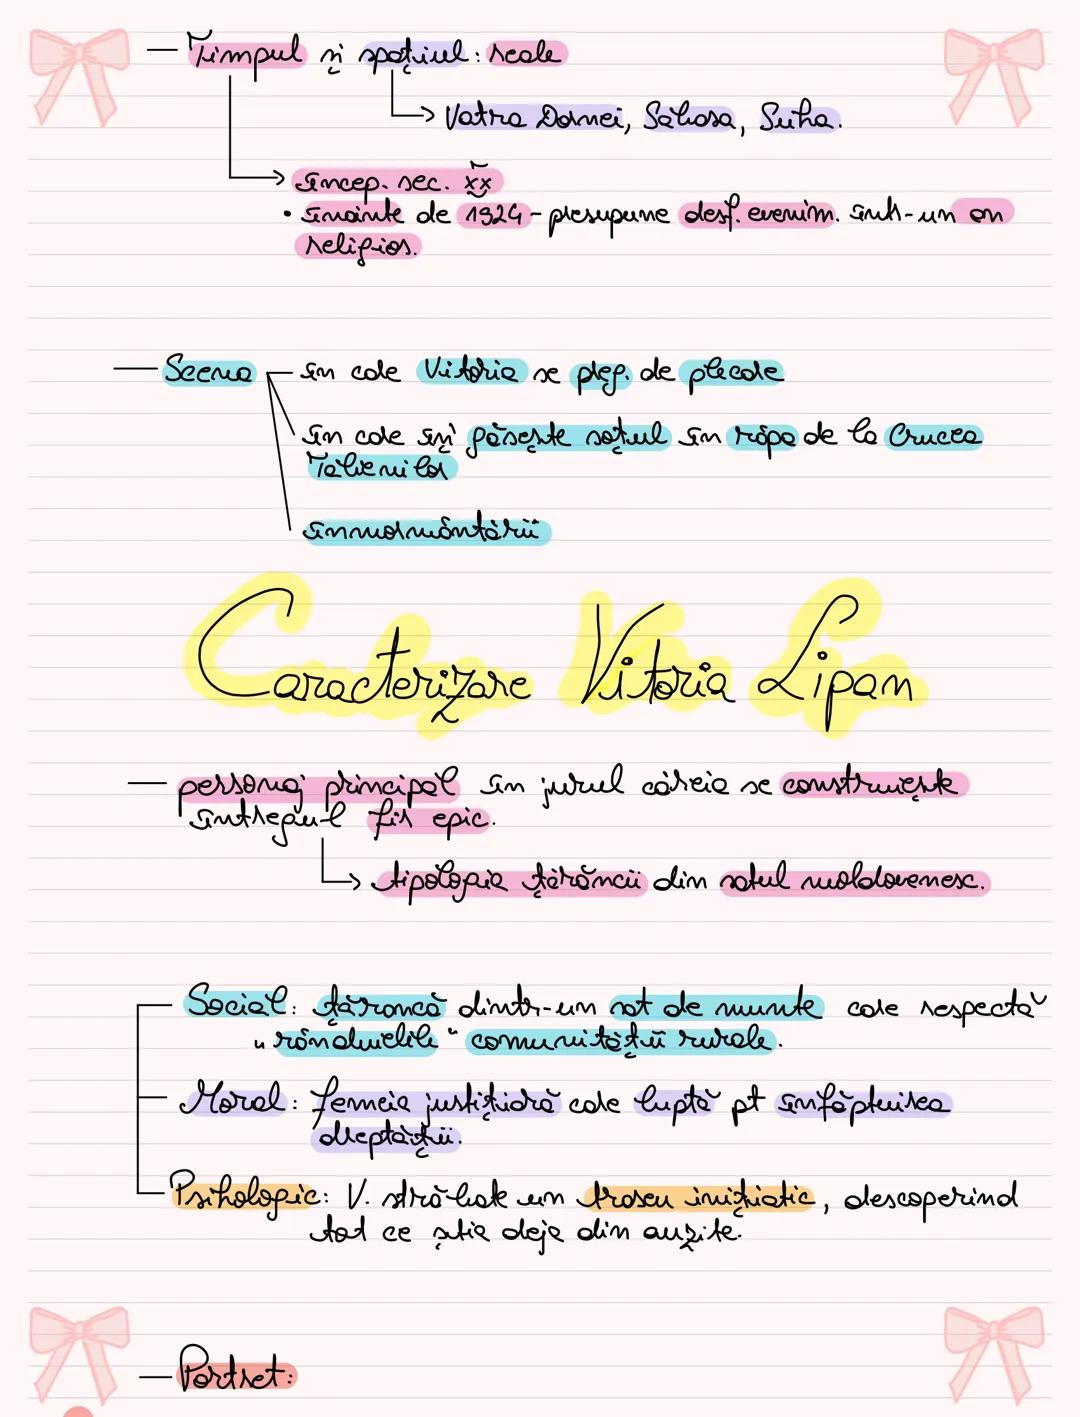 — Timpul și spațiul: reale
→ Vatra Dornei, Sabasa, Suha.
→ încep. sec. XX
• înainte de 1924 - presupune desf. evenim. într-un an
religios.
— Scena — în care Vitoria se preg. de plecare
în care își găsește soțul în râpa de la Crucea
Talienilor
înmormântării
Caracterizare Vitoria Lipan
— personaj principal în jurul căreia se construiește
întregul fir epic.
→ tipologia țărăncii din satul moldovenesc.
Social: țărancă dintr-un sat de munte care respectă
"rânduielile" comunității rurale.
Moral: femeia justițiară care luptă pt înfăptuirea
dreptății.
Psihologic: V. străbate un traseu inițiatic, descoperind
tot ce știa deja din auzite.
— Portret: